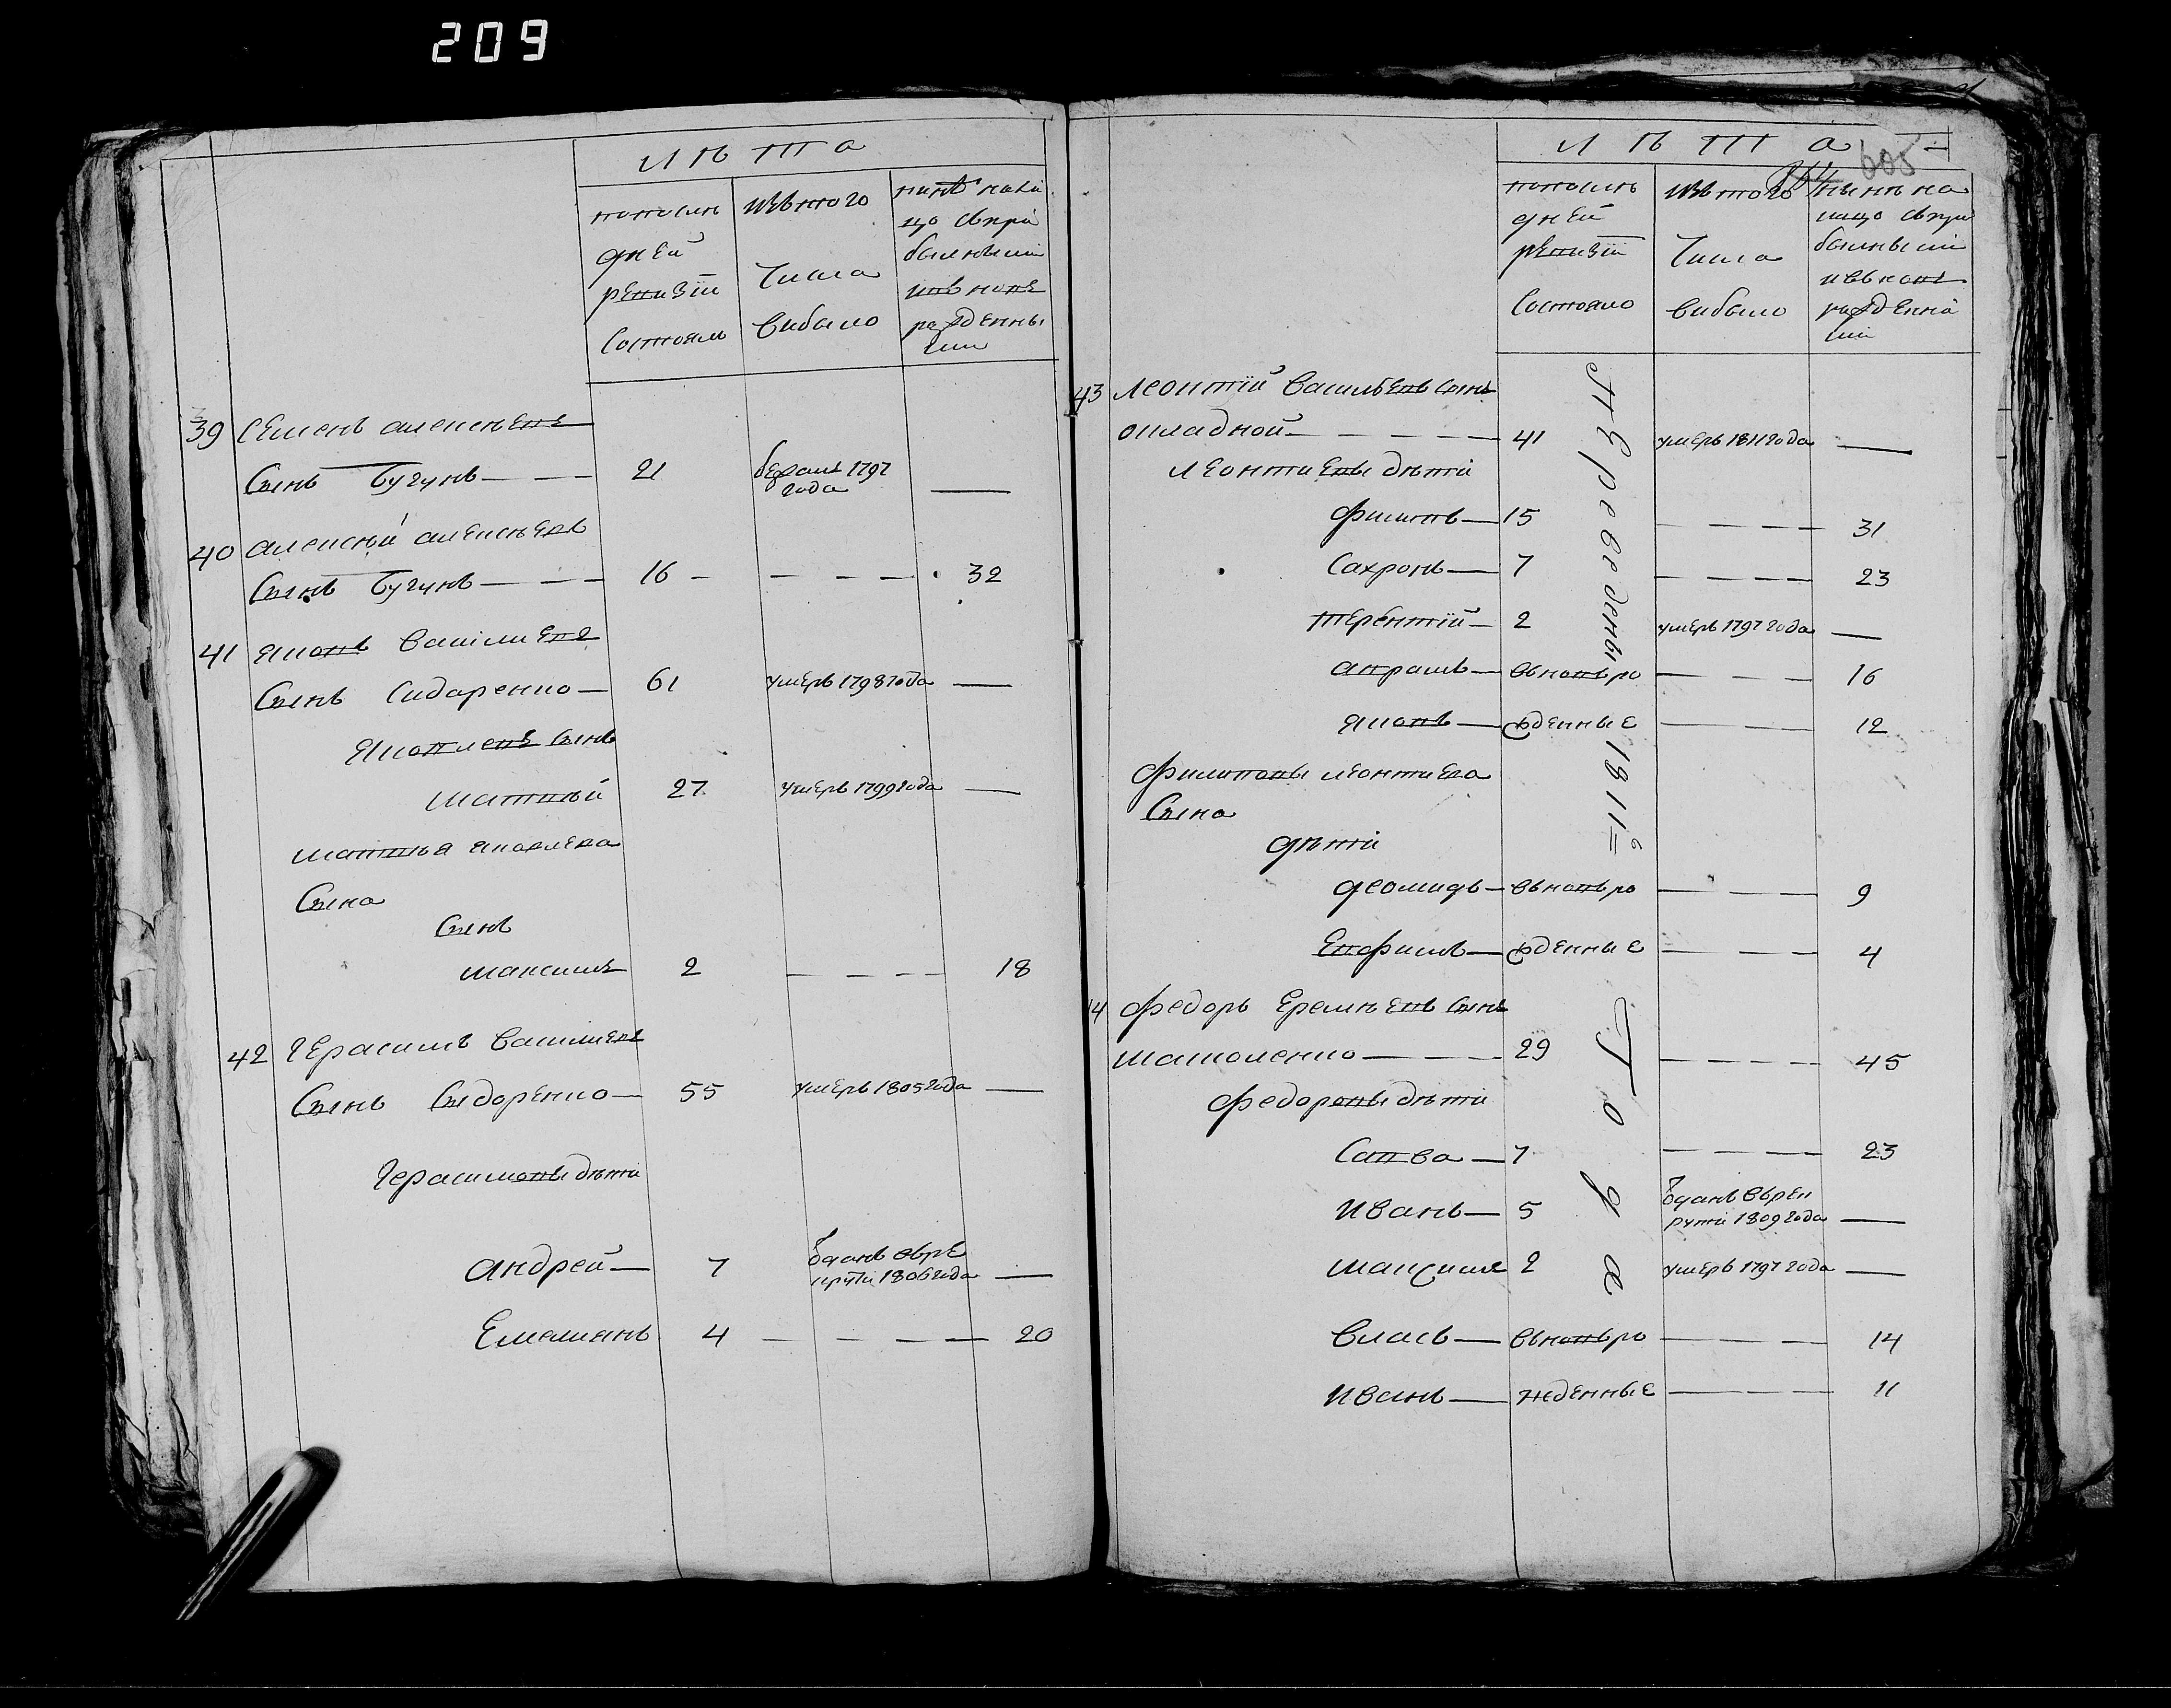 209
лѣта
попослѣ
дней
ревизіи
состояло
изъ того
числа
выбыло
нынѣ нали
цо съ при
былыми
и вновь
рожденны
ми
39 Семенъ алексѣевъ
сынъ Бугунъ — 21 бежалъ 1797
года —
40 алексѣй алексѣевъ
сынъ Бугунъ — 16 — 32
41 яковъ василиевъ
сынъ Сидаренко — 61 умеръ 1798 года —
яковлевъ сынъ
матвѣй 27 умеръ 1799 года —
матвѣя яковлева
сына
сынъ
максимъ 2 — 18
42 Герасимъ василиевъ
сынъ Сыдоренко — 55 умеръ 1805 года —
Герасимовы дѣти
андрей — 7 Отданъ въ ре
круты 1806 года —
Емелиянъ 4 — 20
лѣта
605
попослѣ
дней
ревизіи
состояло
изъ того
числа
выбыло
нынѣ на
лицо съ при
былыми
и вновь
рожденны
ми
43 леонтій васильевъ сынъ
окладной — 41 умеръ 1811 года —
леонтиевы дѣти
филипъ — 15 — 31
Сахронъ — 7 — 23
терентій — 2 умеръ 1797 года —
аврамъ — вновь ро — 16
яковъ — жденные — 12
филиповы леонтиева
сына
дѣти
деомидъ — вновь ро — 9
Евфимъ — жденные — 4
44 федоръ Еремѣевъ сынъ
маколенко — 29 — 45
федоровы дѣти
Савва — 7 — 23
иванъ — 5 Отданъ въ рек
руты 1809 года —
максимъ 2 умеръ 1797 года —
власъ — вновь ро — 14
иванъ — жденные — 11
переведены 1811го Года